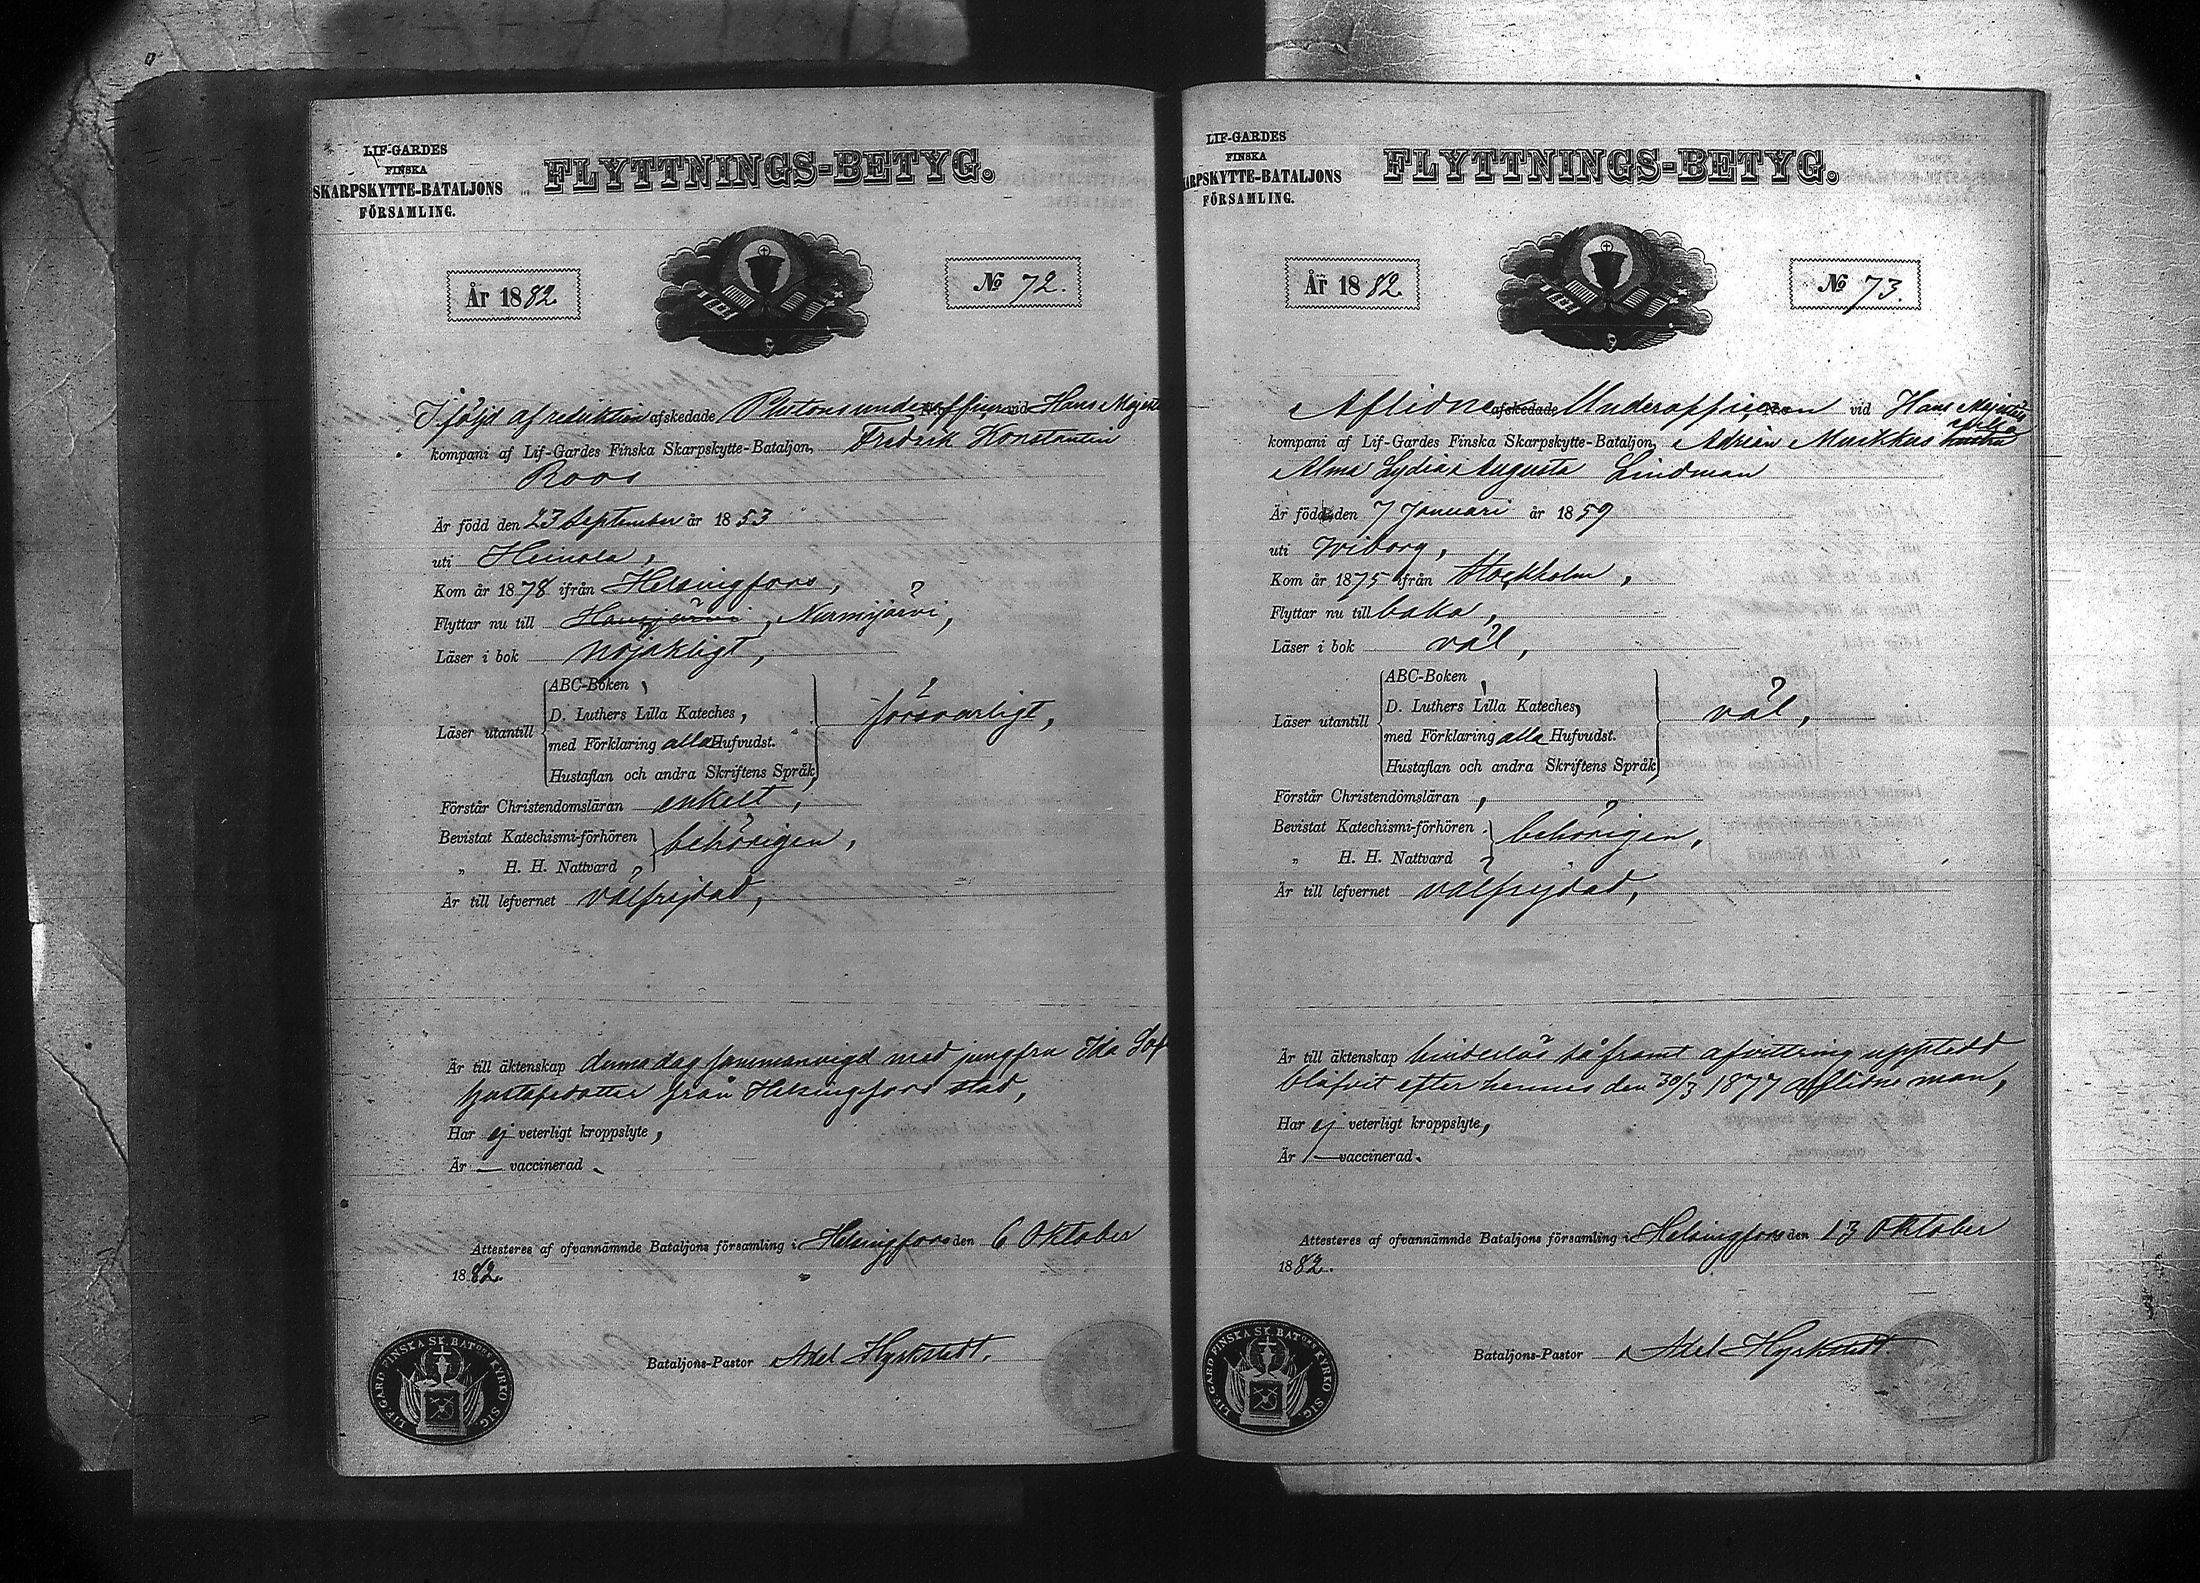 LIF-GARDES
FINSKA
SKARPSKYTTE-BATALJONS
FÖRSAMLING.
FLYTTNINGS-BETYG.
År 1882.
No 72.
I följd af reduktion afskedade Plutonsunderofficer vid Hans Majestäts
kompani af Lif-Gardes Finska Skarpskytte-Bataljon, Fredrik Konstantin
Roos
Är född den 23 September år 1853
uti Heinola,
Kom år 1878 ifrån Helsingfors,
Flyttar nu till Hausjärvi, Nurmijärvi,
Läser i bok nöjaktigt,
Läser utantill
ABC-Boken,
D. Luthers Lilla Kateches,
med Förklaring alla Hufvudst.
Hustaflan och andra Skriftens Språk,
försvarligt,
Förstår Christendomsläran enkelt,
Bevistat Katechismi-förhören
„ H. H. Nattvard
behörigen,
Är till lefvernet välfrejdad,
Är till äktenskap denna dag sammanvigd med jungfru Ida
Gustafsdotter från Helsingfors stad,
Har ej veterligt kroppslyte,
Är — vaccinerad.
Attesteres af ofvannämnde Bataljons församling i Helsingfors den 6 Oktober
1882.
Bataljons-Pastor Axel Hyrkstedt.
LIF-GARD FINSKA SK. BATons KYRKO SIG.
LIF-GARDES
FINSKA
ARPSKYTTE-BATALJONS
FÖRSAMLING.
FLYTTNINGS-BETYG.
År 1882.
No 73.
Aflidne afskedade Underofficeren vid Hans Majestäts
kompani af Lif-Gardes Finska Skarpskytte-Bataljon, Adrian Musikkus hustru enka
Alma Lydia Augusta Lindman
Är född den 7 Januari år 1859
uti Wiborg,
Kom år 1875 ifrån Stockholm,
Flyttar nu till baka,
Läser i bok väl,
Läser utantill
ABC-Boken,
D. Luthers Lilla Kateches,
med Förklaring alla Hufvudst.
Hustaflan och andra Skriftens Språk,
väl,
Förstår Christendomsläran,
Bevistat Katechismi-förhören
„ H. H. Nattvard
behörigen,
Är till lefvernet välfrejdad,
Är till äktenskap hinderlös så framt afvittring upptedd
blifvit efter hennes den 30/3 1877 aflidne man,
Har ej veterligt kroppslyte,
Är — vaccinerad.
Attesteres af ofvannämnde Bataljons församling i Helsingfors den 13 Oktober
1882.
Bataljons-Pastor Axel Hyrkstedt.
LIF-GARD FINSKA SK. BATons KYRKO SIG.